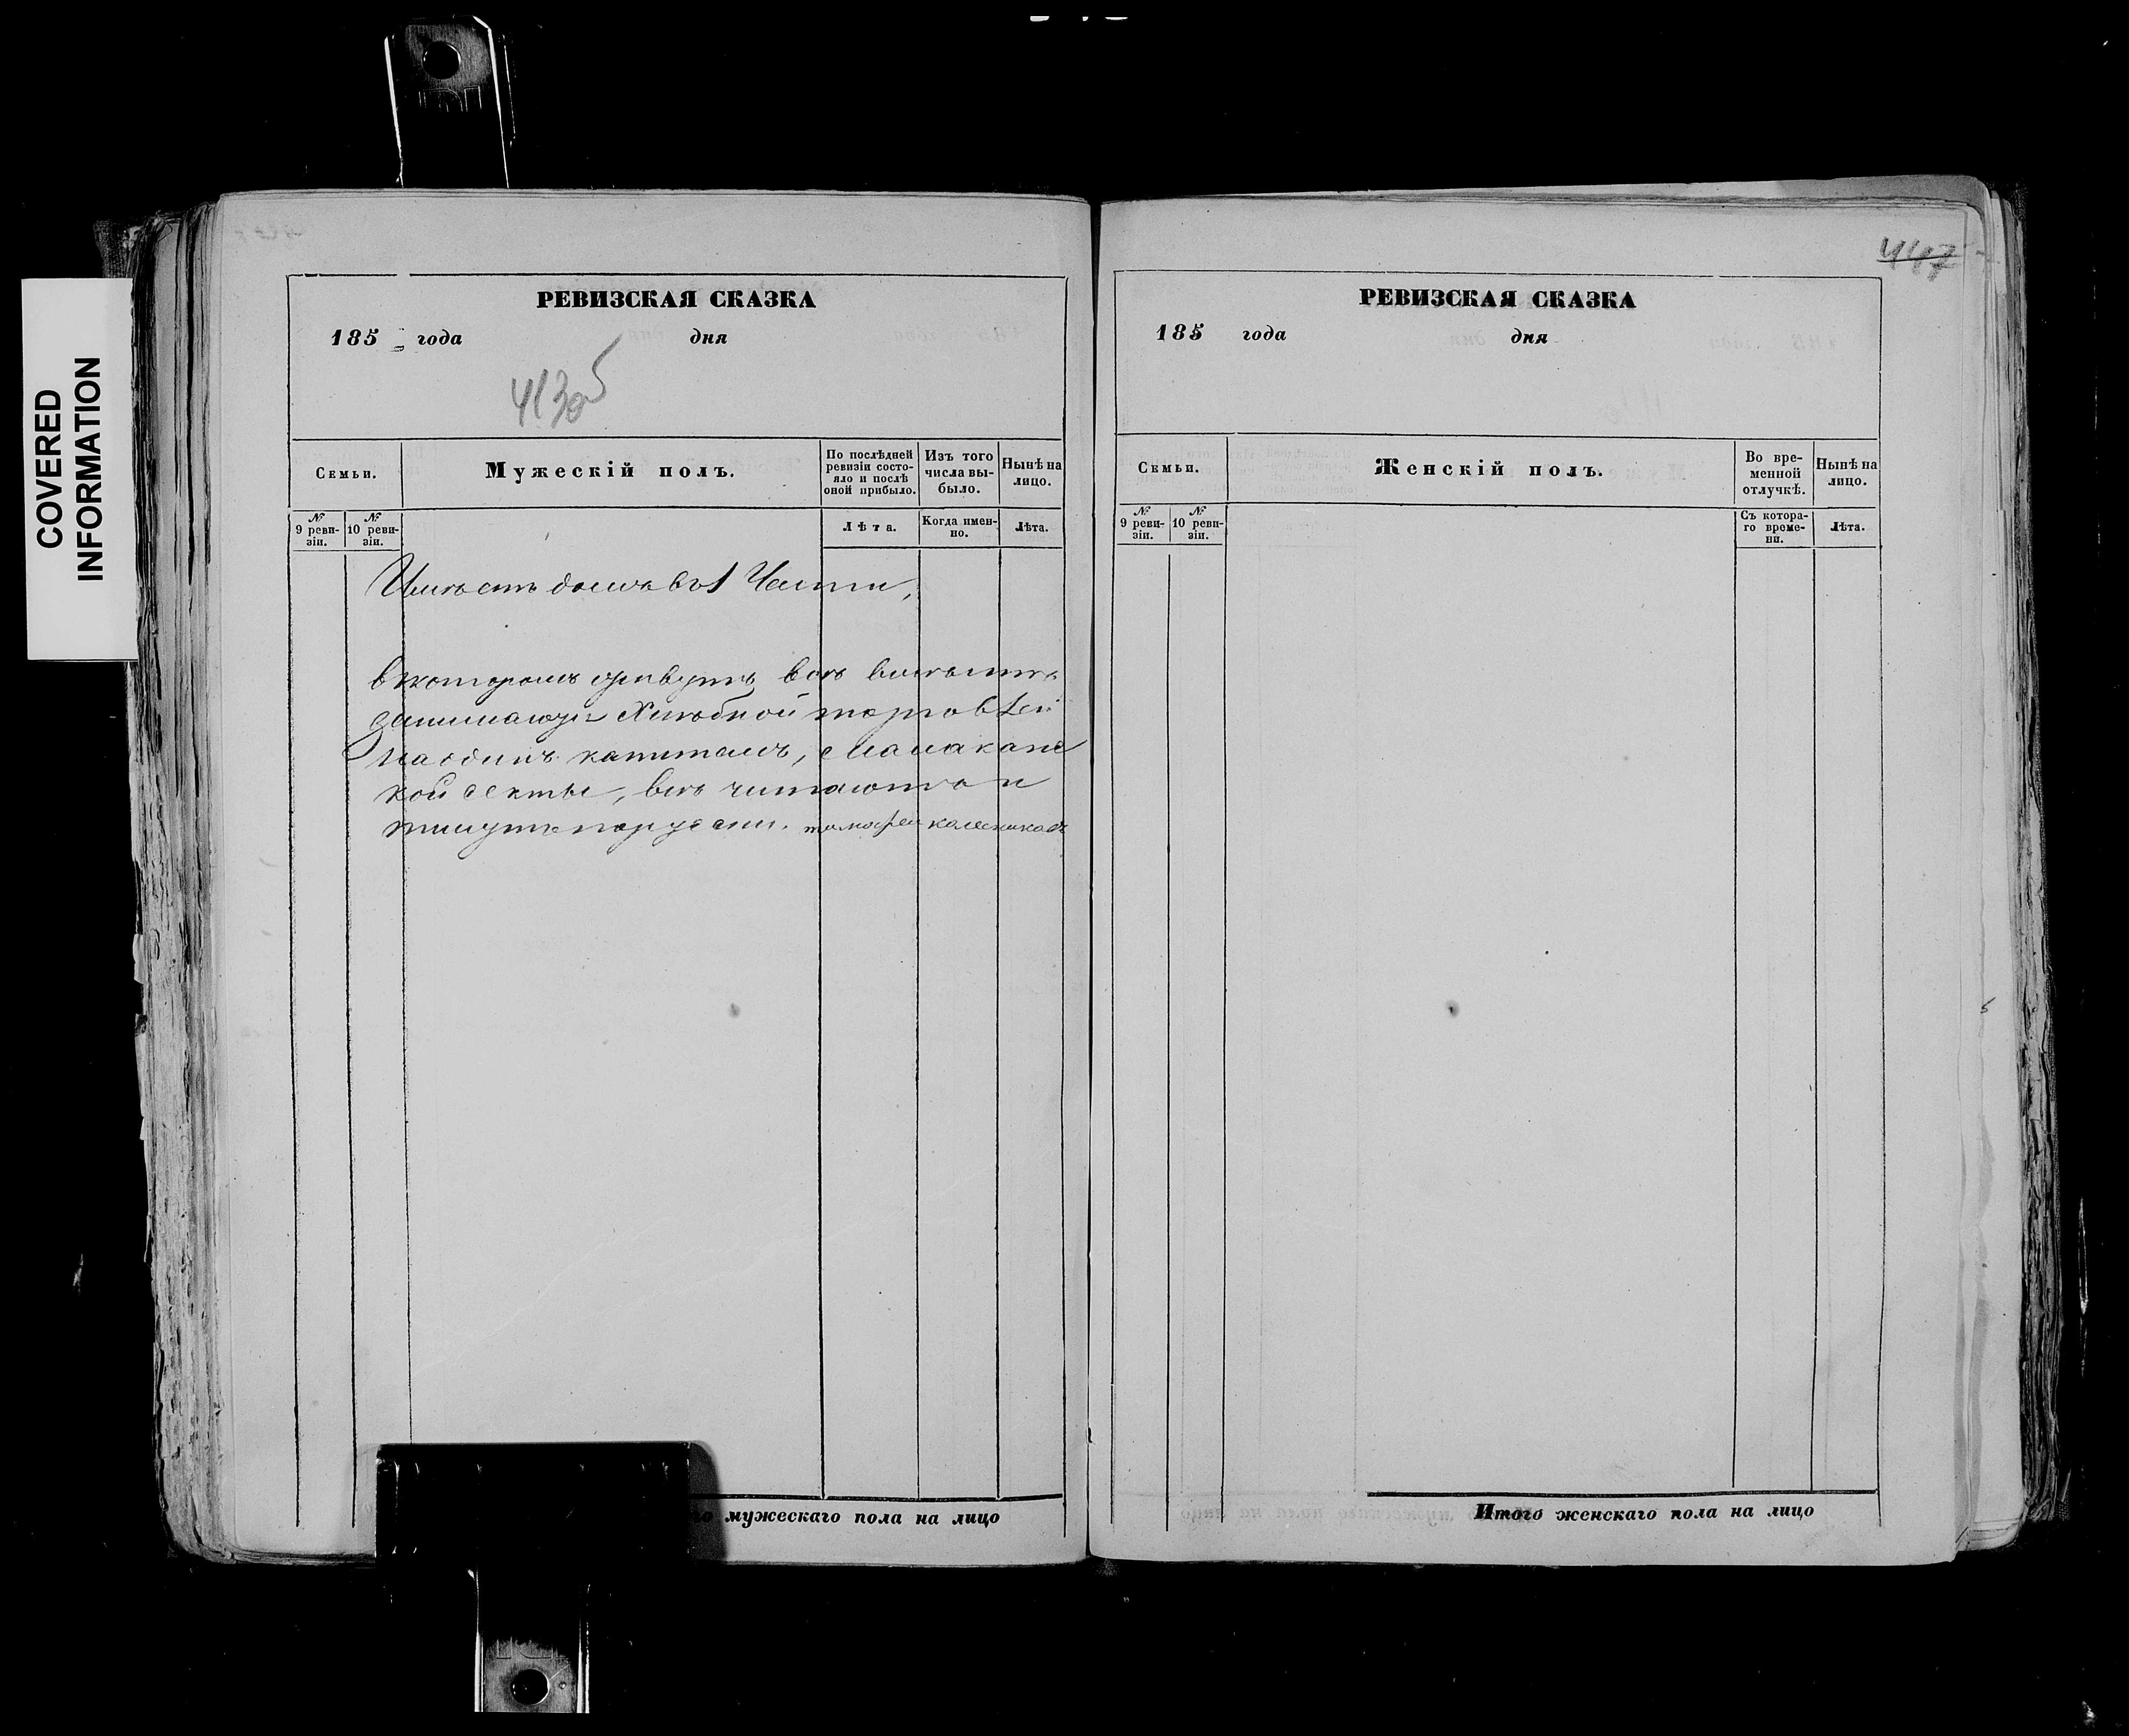 COVERED
INFORMATION
РЕВИЗСКАЯ СКАЗКА
185 года дня
Семьи.
Мужескій полъ.
По послѣдней
ревизіи состо-
яло и послѣ
оной прибыло.
Изъ того
числа вы-
было.
Нынѣ на
лицо.
№
9 реви-
зіи.
№
10 реви-
зіи.
Лѣта.
Когда имен-
но.
Лѣта.
Имѣетъ домъ въ 1 Части,
в которомъ живутъ всѣ вмѣстѣ
Хлебной торговлей
на одинъ капиталъ, Малаканс
кой секты, всѣ читаютъ и
пишутъ поруски. тимофеи калесниковъ
мужескаго пола на лицо
447
РЕВИЗСКАЯ СКАЗКА
185 года дня
Семьи.
Женскій полъ.
Во вре-
менной
отлучкѣ.
Нынѣ на
лицо.
№
9 реви-
зіи.
№
10 реви-
зіи.
Съ котора-
го време-
ни.
Лѣта.
Итого женскаго пола на лицо